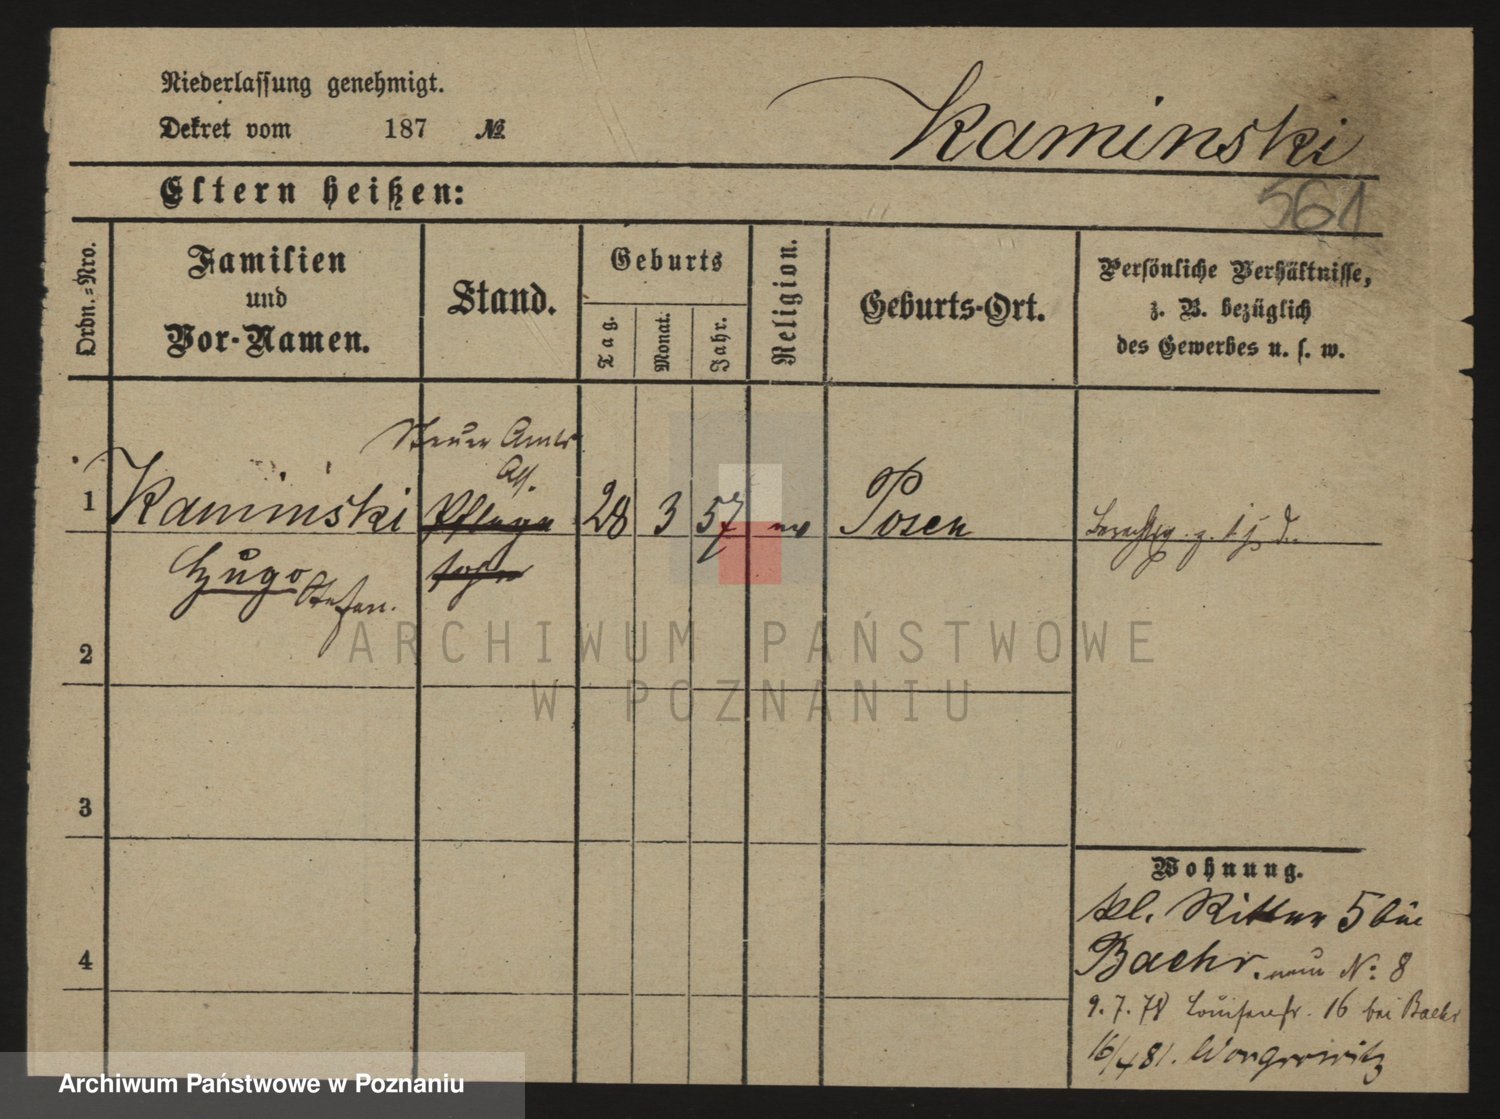 Niederlassung genehmigt.
Dekret vom 187 №
Kaminski
561
Eltern heißen:
Ordn.=Nro.
Familien
und
Vor-Namen.
Stand.
Geburts
Tag.
Monat.
Jahr.
Religion.
Geburts-Ort.
Persönliche Verhältnisse,
z. B. bezüglich
des Gewerbes u. s. w.
Steuer Amts
Ass.
1 Kaminski Pflege 28 3 57 Posen
Hugo Stefan.
sohn
2
3
4
Wohnung.
kl. Ritter 5 bei
Baehr. neu No 8
9.7.78 Louisenstr. 16 bei Baehr
16/4 81. Wongrowitz
ARCHIWUM PAŃSTWOWE
W POZNANIU
Archiwum Państwowe w Poznaniu